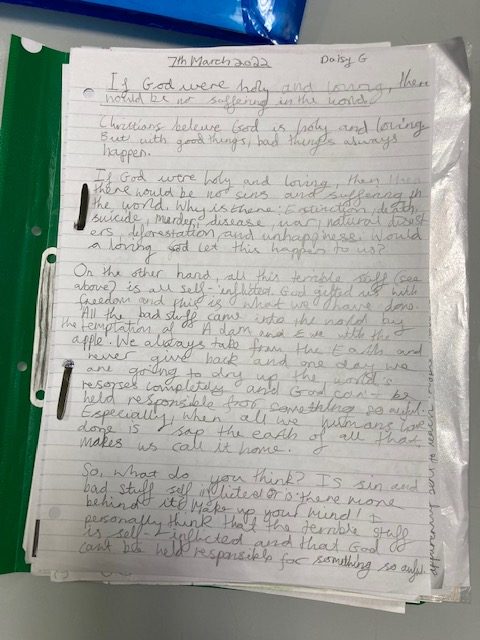 7th March 2022 Daisy G
If God were holy and loving, there
would be no suffering in the world.
Christians beleive God is holy and loving
But with good things, bad things always
happen.
If God were holy and loving, then
there would be no sins and suffering in
the world. Why is there: Extinction, death,
suicide, murder, disease, war, natural disast
ers, deforestation, and unhappiness. Would
a loving God let this happen to us?
On the other hand, all this terrible stuff (see
above) is all self-inflicted. God gifted us with
freedom and this is what we have done.
All the bad stuff came into the world by
the temptation of Adam and Eve with the
apple. We always take from the Earth and
never give back and one day we
are going to dry up the world's
resorses completely and God can't be
held responsible for something so awful.
Especially, when all we humans have
done is sap the earth of all that
makes us call it home.
So, what do you think? Is sin and
bad stuff self inflicted or is there more
behind it? Make up your mind! I
personally think that the terrible stuff
is self-inflicted and that God
can't be held responsible for something so awful.